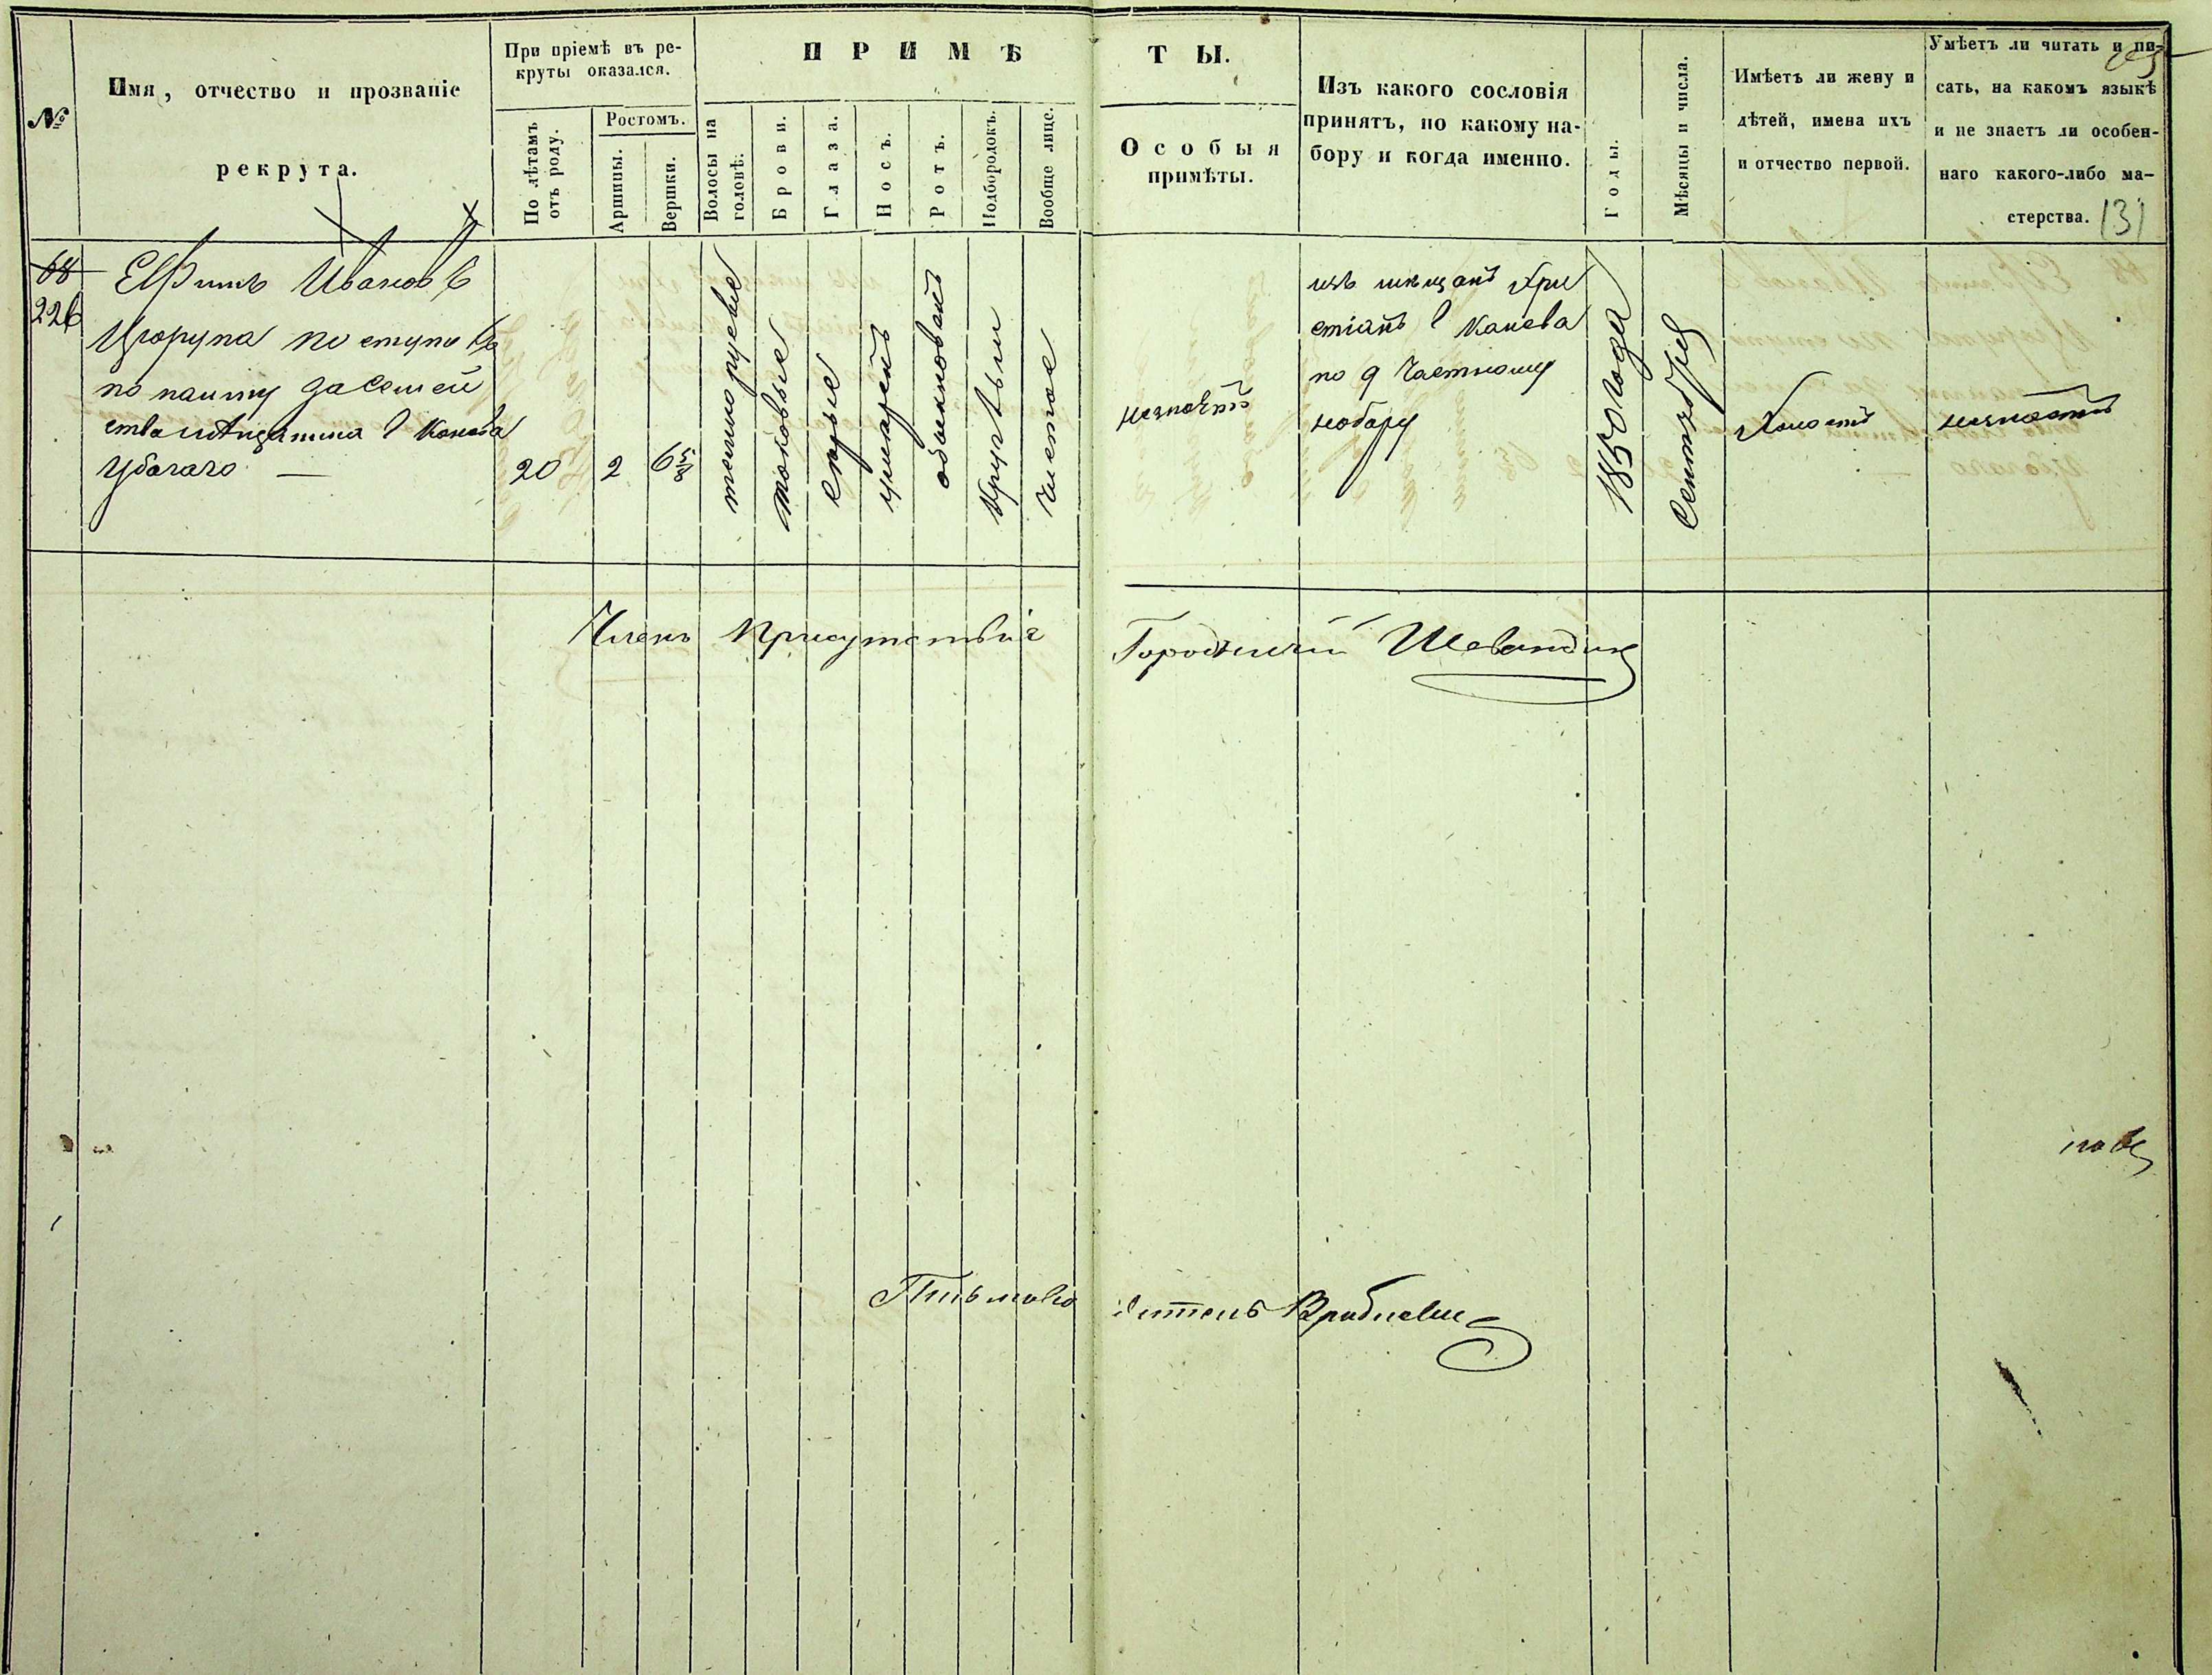 №
Имя, отчество и прозваніе
рекрута.
При пріемѣ въ ре-
круты оказался.
По лѣтамъ
отъ роду.
Ростомъ.
Аршины.
Вершки.
ПРИМѢ
Волосы на
головѣ.
Брови.
Глаза.
Носъ.
Ротъ.
Подбородокъ.
Вообще лице.
ТЫ.
Особыя
примѣты.
Изъ какого сословія
принятъ, по какому на-
бору и когда именно.
Годы.
Мѣсяцы и числа.
Имѣетъ ли жену и
дѣтей, имена ихъ
и отчество первой.
Умѣетъ ли читать и пи-
сать, на какомъ языкѣ
и не знаетъ ли особен-
наго какого-либо ма-
стерства.
131
68
226
Ефимъ Ивановъ
Цюрупа поступ
по найму за семей
ство мѣщанина г Канева
Убогаго —
20
2
6 5/8
темнорусые
таковые
сѣрые
умѣренъ
обыкновенъ
круглый
чистое
незнаетъ
изъ мѣщанъ хри
стіанъ г Канева
по 9 Частному
набору
1850 года
Сентября
Холостъ
незнаетъ
Членъ Присутствія
Городничій
Письмово
дитель